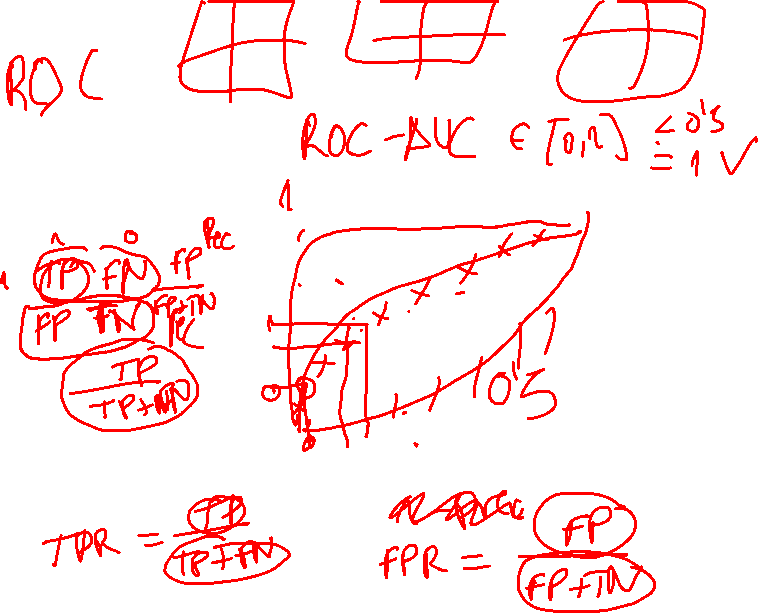 ROC
ROC-AUC ∈ [0,1] < 0'5
= 1 ✓
1
1 0
1 TP FN FP Rec
FP FN FP+TN
TP
TP+
0
0'5
TPR = TP / TP+FN
FPR = FP / FP+TN